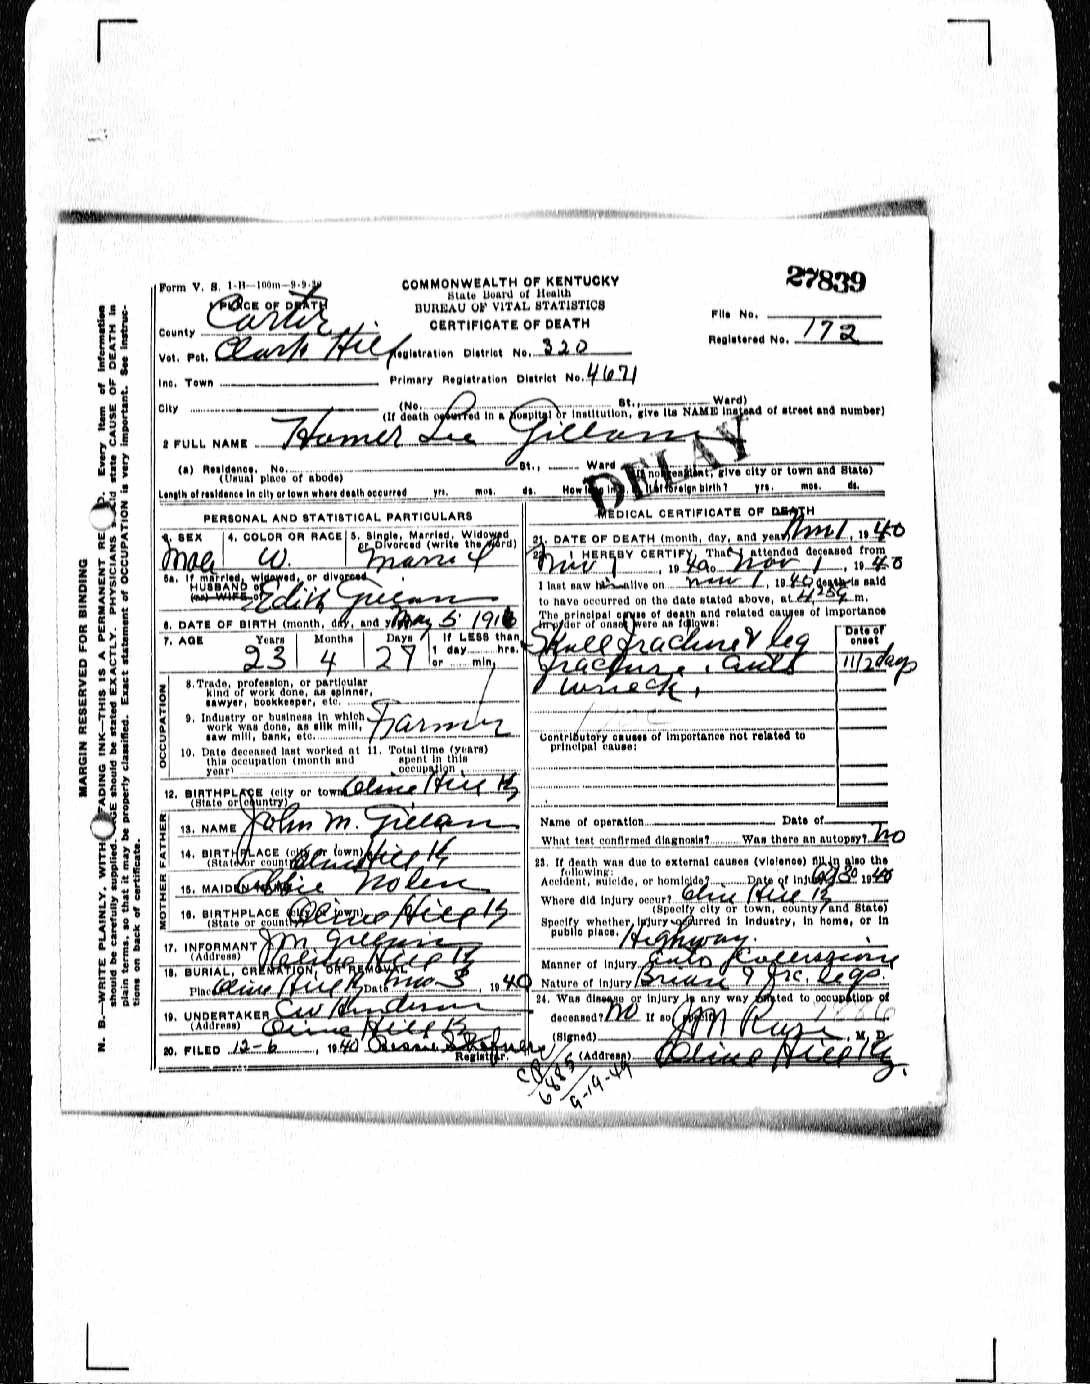 27839
Form V. S. 1-B—100m—9-9-39
COMMONWEALTH OF KENTUCKY
State Board of Health
BUREAU OF VITAL STATISTICS
CERTIFICATE OF DEATH
File No.
Registered No. 172
1 PLACE OF DEATH
County Carter
Vot. Pct. Clark Hill Registration District No. 320
Inc. Town Primary Registration District No. 4671
City (No. St., Ward)
(If death occurred in a hospital or institution, give its NAME instead of street and number)
2 FULL NAME Homer Lee Gillam
(a) Residence. No. St., Ward (If nonresident, give city or town and State)
(Usual place of abode)
DELAY
Length of residence in city or town where death occurred yrs. mos. ds. How long in U.S., if of foreign birth? yrs. mos. ds.
PERSONAL AND STATISTICAL PARTICULARS
3. SEX 4. COLOR OR RACE 5. Single, Married, Widowed
or Divorced (write the word)
Male W. Married
5a. If married, widowed, or divorced
HUSBAND of
(or) WIFE of Edith Gillam
6. DATE OF BIRTH (month, day, and year) May 5 1916
7. AGE Years Months Days If LESS than
1 day hrs.
or min.
23 4 27
OCCUPATION
8. Trade, profession, or particular
kind of work done, as spinner,
sawyer, bookkeeper, etc.
9. Industry or business in which
work was done, as silk mill,
saw mill, bank, etc. Farmer
10. Date deceased last worked at 11. Total time (years)
this occupation (month and spent in this
year) occupation
12. BIRTHPLACE (city or town) Olive Hill Ky
(State or country)
FATHER
13. NAME John M. Gillam
14. BIRTHPLACE (city or town) Olive Hill Ky
(State or country)
MOTHER
15. MAIDEN NAME Nolen
16. BIRTHPLACE (city or town) Olive Hill Ky
(State or country)
17. INFORMANT J M Gillam
(Address) Olive Hill Ky
18. BURIAL, CREMATION, OR REMOVAL
Place Olive Hill Ky Date Nov 3, 1940
19. UNDERTAKER C W Henderson
(Address) Olive Hill Ky
20. FILED 12-6, 1940
Registrar.
MEDICAL CERTIFICATE OF DEATH
21. DATE OF DEATH (month, day, and year) Nov 1, 1940
22. I HEREBY CERTIFY, That I attended deceased from
Nov 1, 1940 to Nov 1, 1940
I last saw him alive on Nov 1, 1940 death is said
to have occurred on the date stated above, at m.
The principal cause of death and related causes of importance
in order of onset were as follows:
Date of
onset
Skull fracture & leg
fracture. auto 1 1/2 days
wreck.
Contributory causes of importance not related to
principal cause:
Name of operation Date of
What test confirmed diagnosis? Was there an autopsy? No
23. If death was due to external causes (violence) fill in also the
following:
Accident, suicide, or homicide? Date of injury Oct 30 1940
Where did injury occur? Olive Hill Ky
(Specify city or town, county and State)
Specify whether injury occurred in industry, in home, or in
public place. Highway.
Manner of injury Auto
Nature of injury & frc. legs.
24. Was disease or injury in any way related to occupation of
deceased? No If so specify
(Signed) M. D.
(Address) Olive Hill Ky.
6885
9-19-49
MARGIN RESERVED FOR BINDING
N. B.—WRITE PLAINLY, WITH UNFADING INK—THIS IS A PERMANENT RECORD. Every item of information
should be carefully supplied. AGE should be stated EXACTLY. PHYSICIANS should state CAUSE OF DEATH in
plain terms, so that it may be properly classified. Exact statement of OCCUPATION is very important. See instruc-
tions on back of certificate.